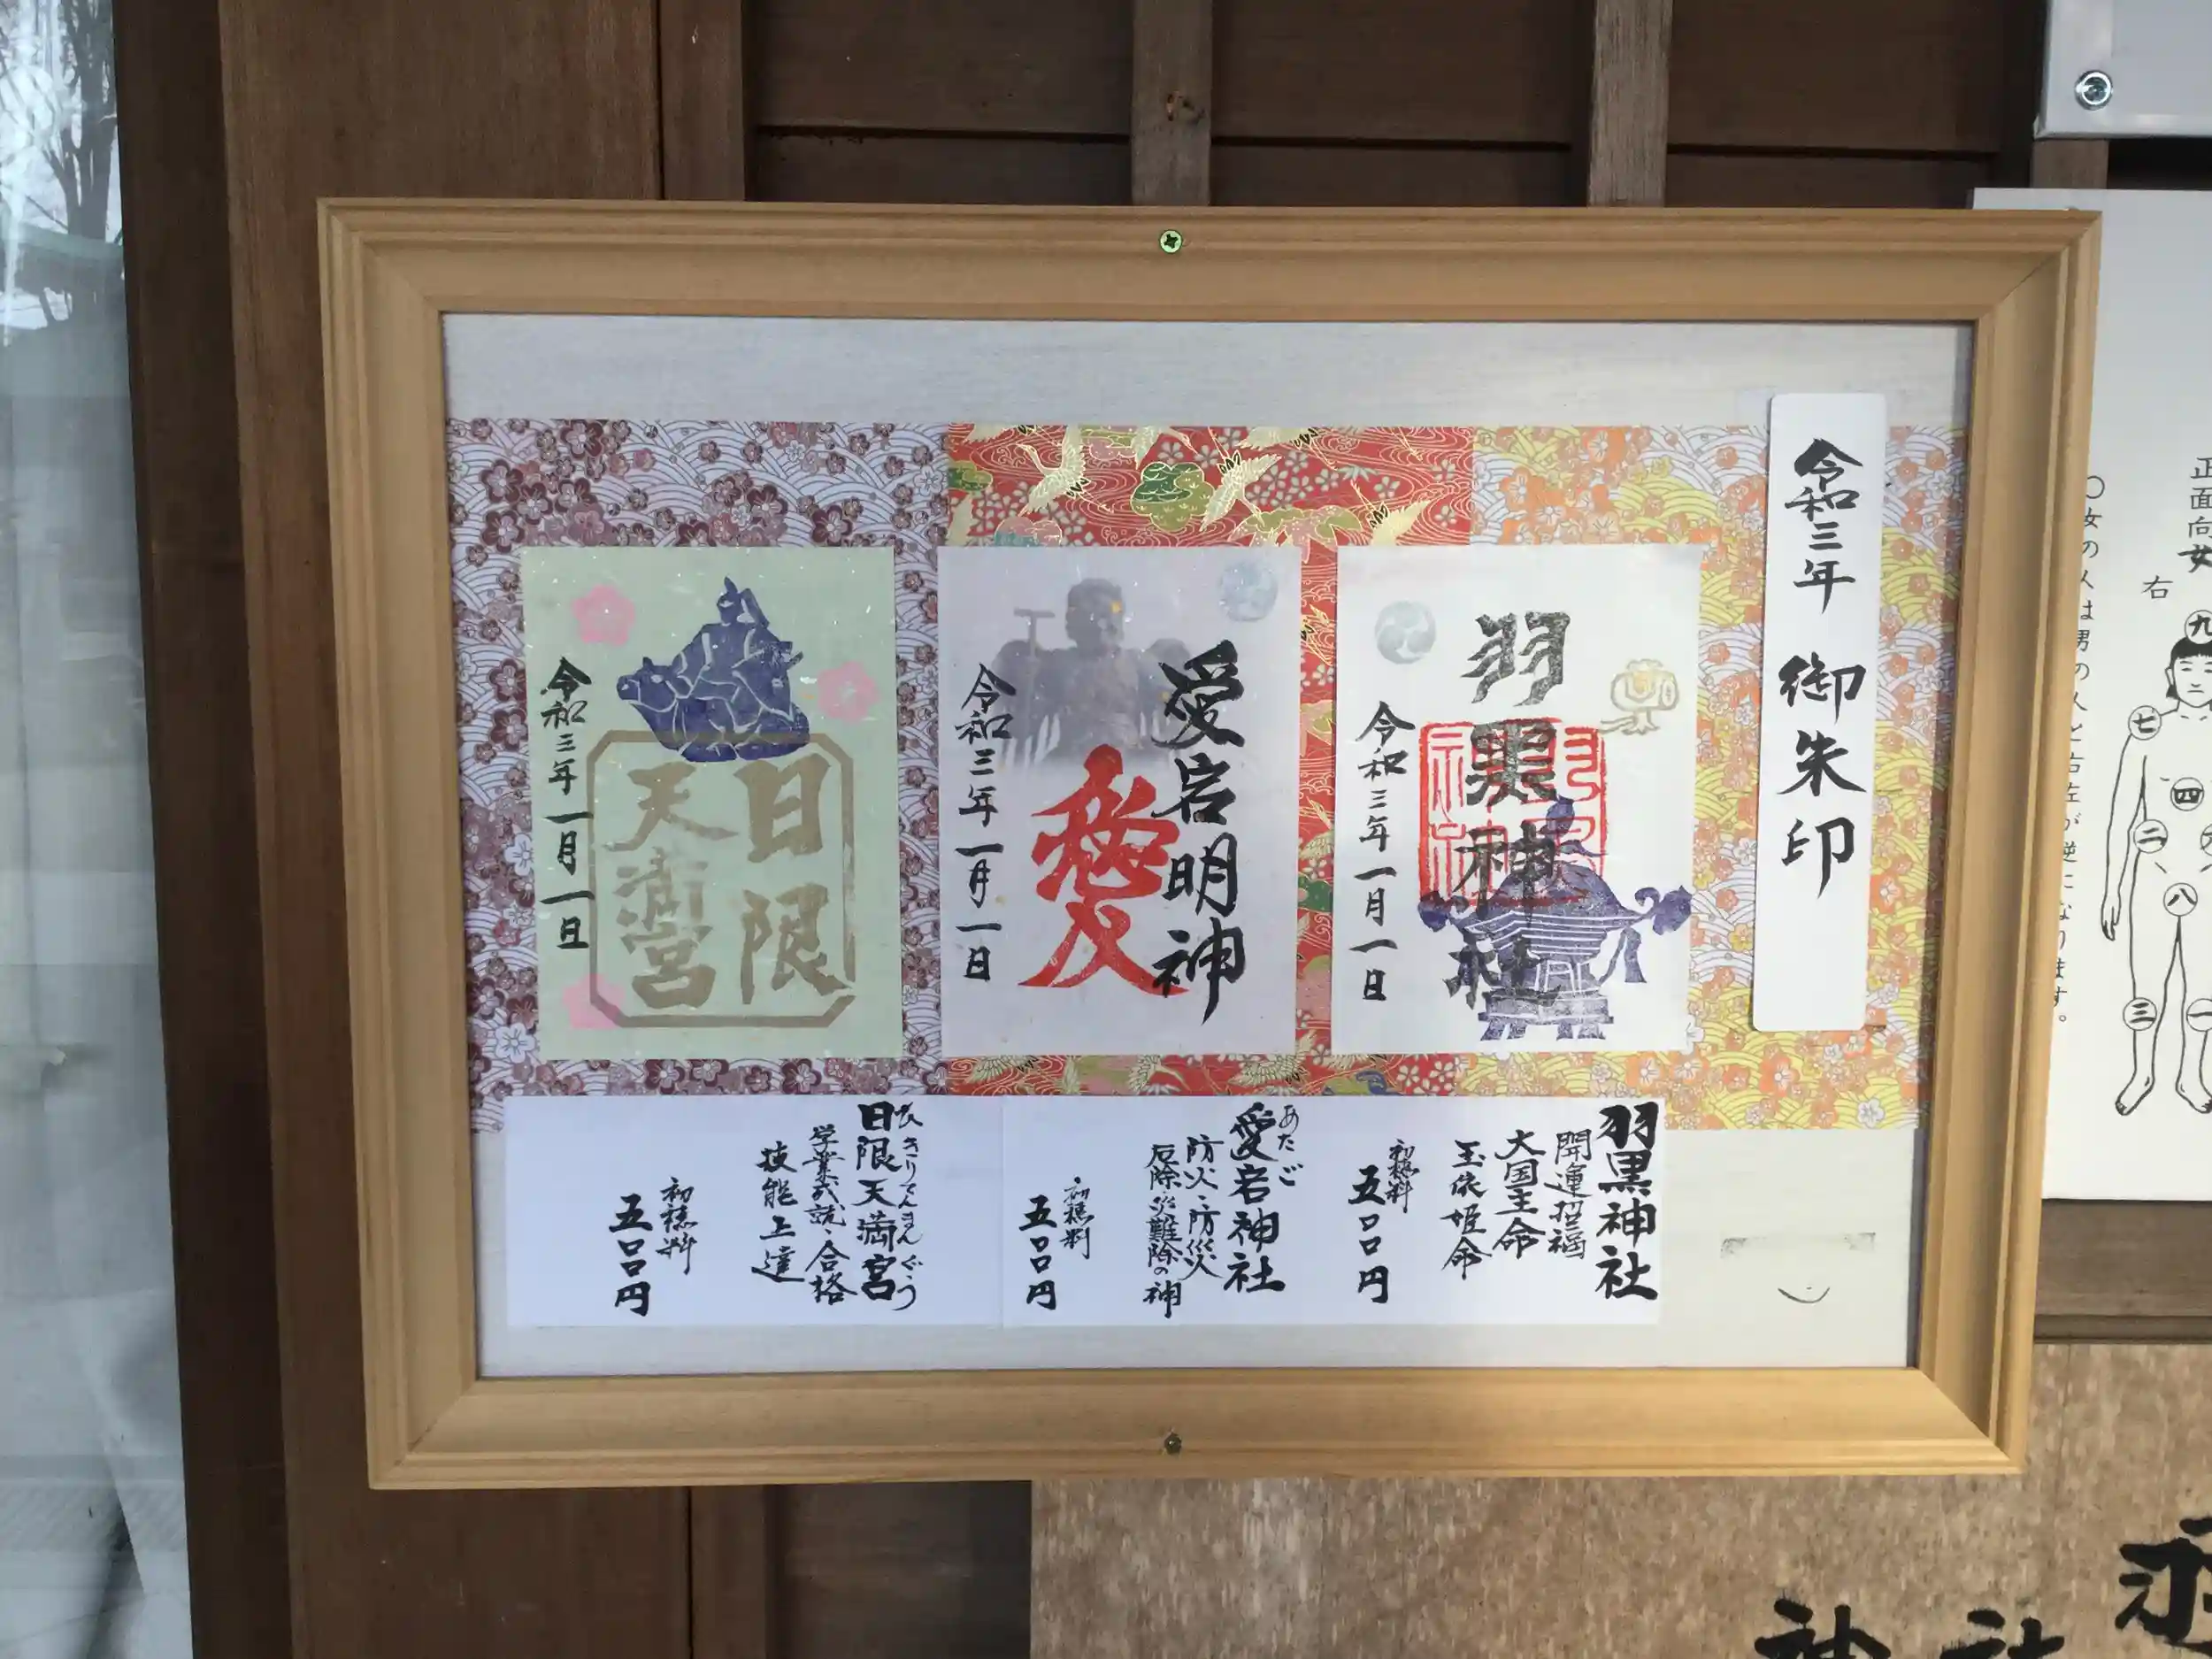 令和三年 御朱印
羽黒神社
令和三年一月一日
愛宕明神
愛
令和三年一月一日
日限
天満宮
令和三年一月一日
羽黒神社
開運招福
大国主命
玉依姫命
初穂料
五〇〇円
あたご
愛宕神社
防火・防災
厄除・災難除の神
初穂料
五〇〇円
ひぎりてんまんぐう
日限天満宮
学業成就・合格
技能上達
初穂料
五〇〇円
正面向
女
右
九
七
四
二
八
三
一
〇女の人は男の人と右左が逆になります。
神社